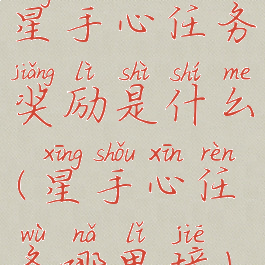 星手心任务
jiǎng lì shì shí me
奖励是什么
xīng shǒu xīn rèn
(星手心任
wù nǎ lǐ jiē
务哪里接)